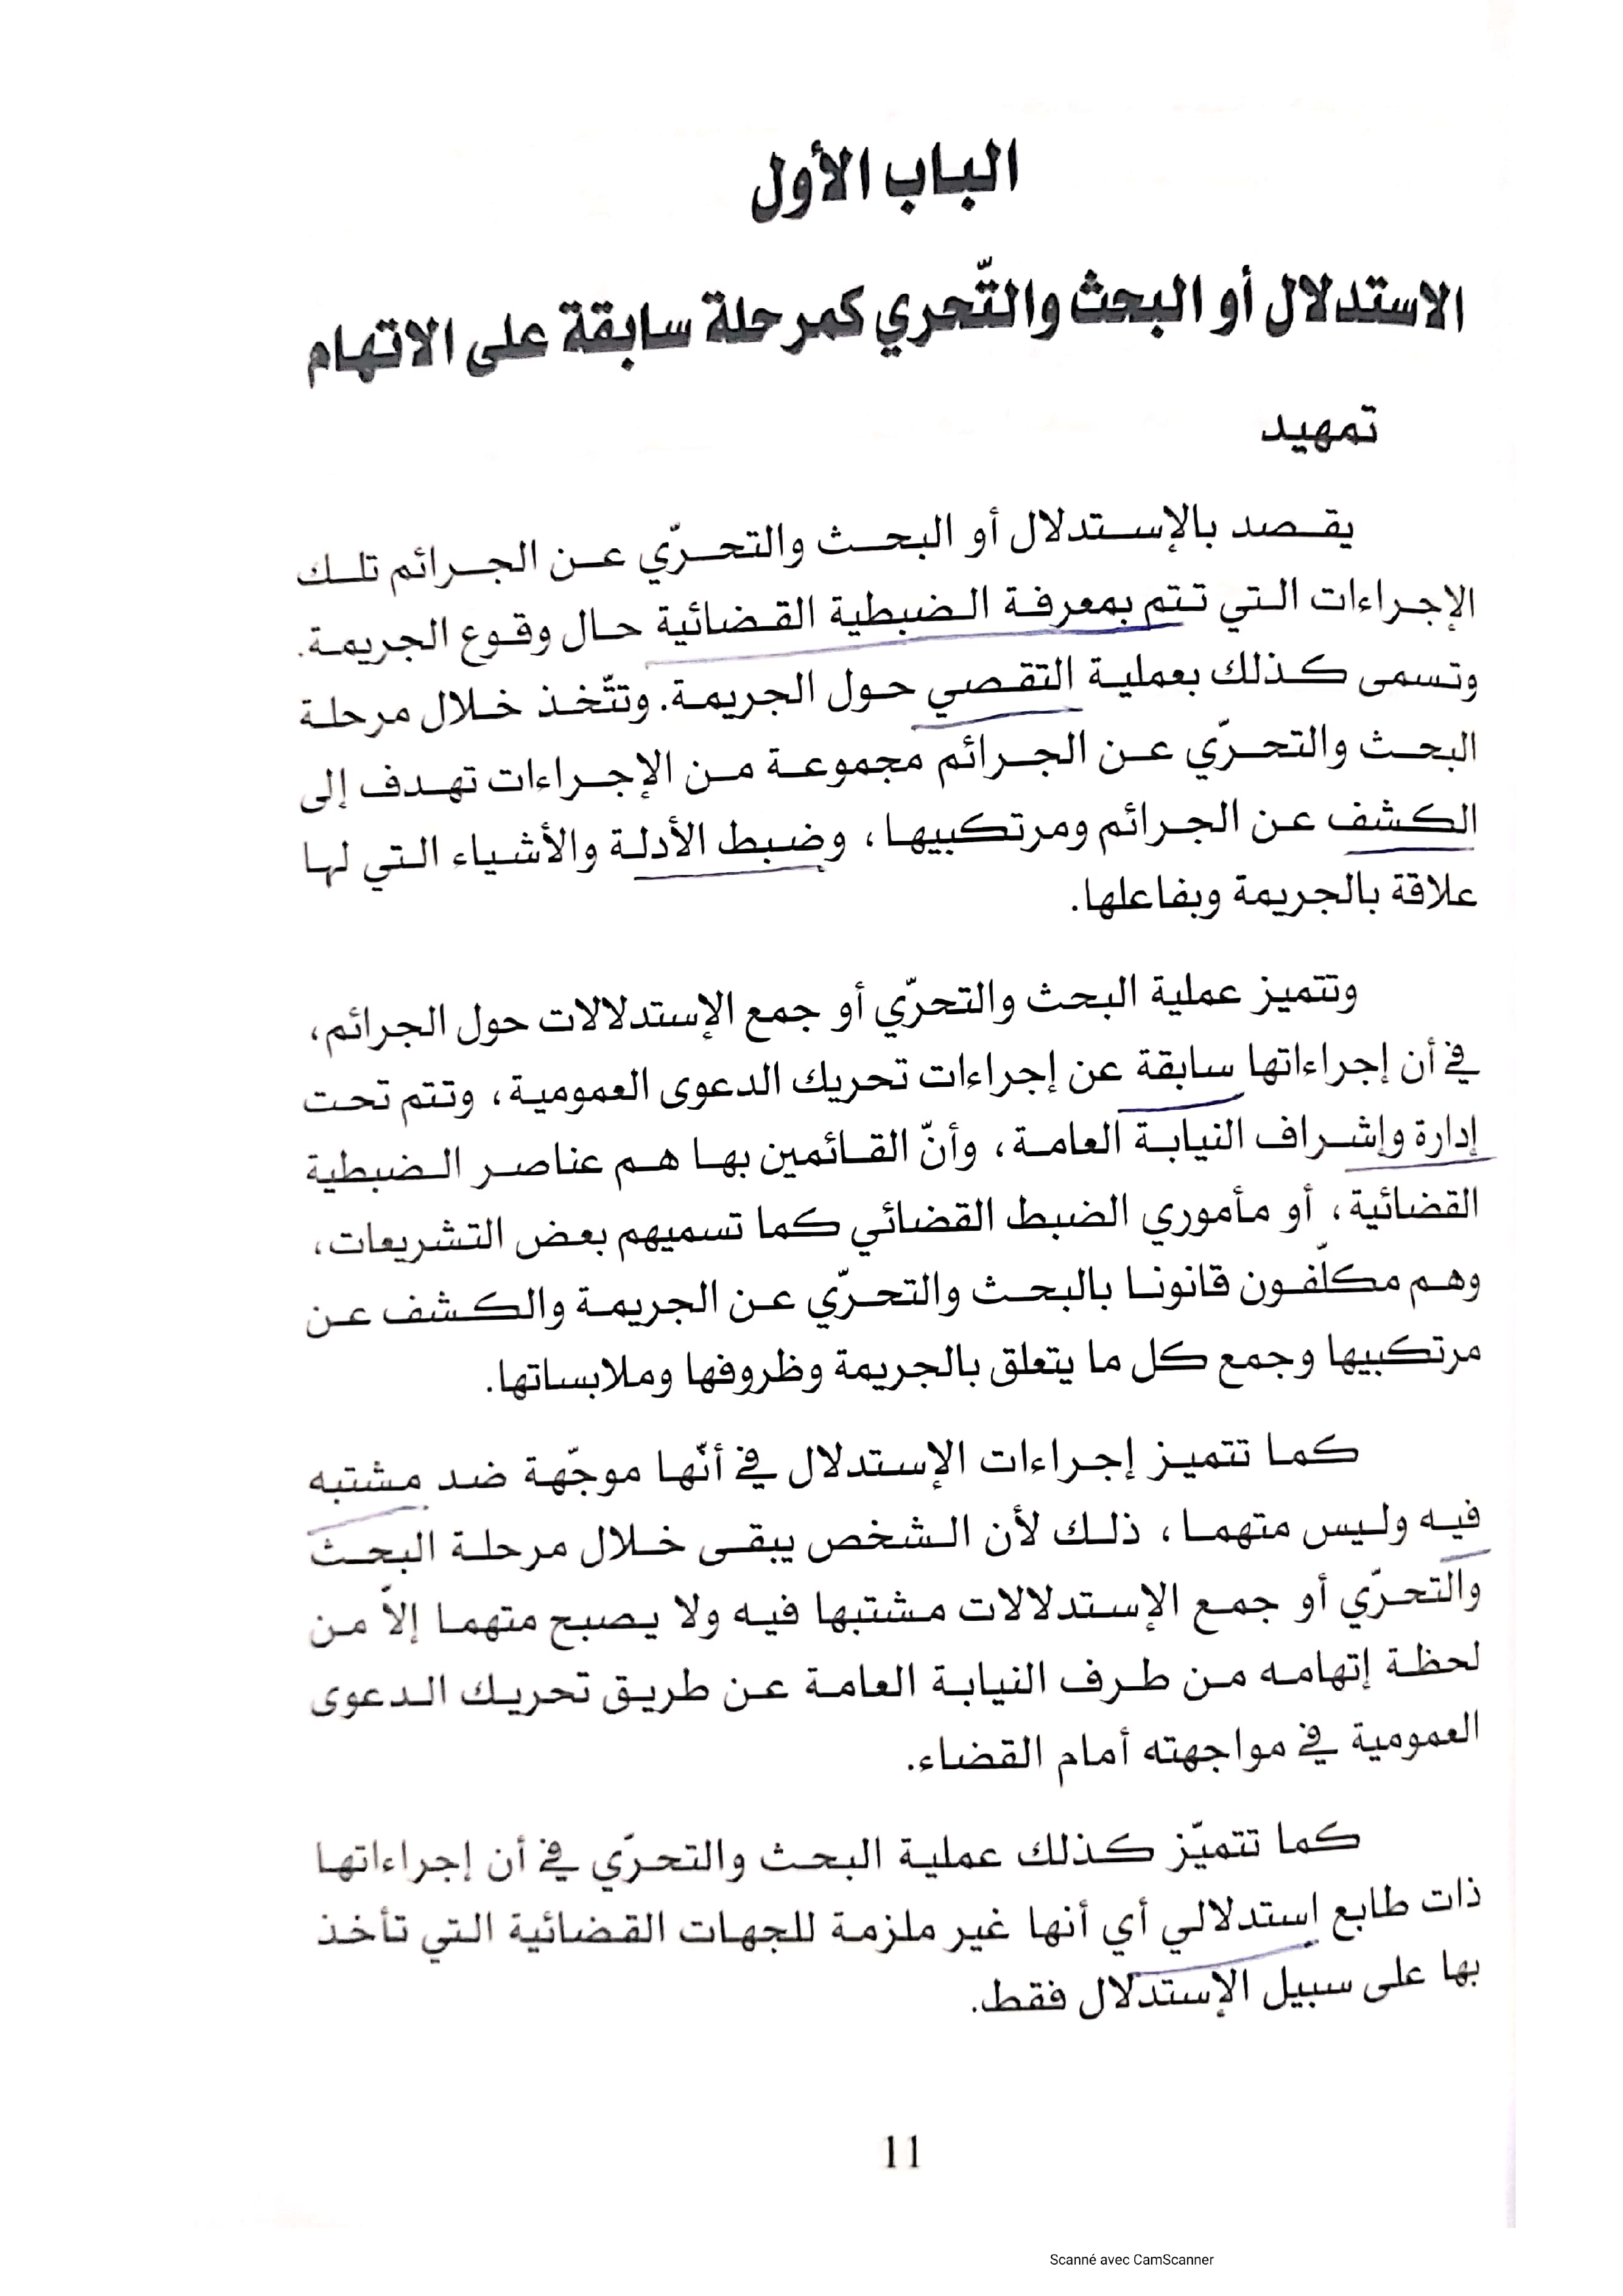 الباب الأول
الاستدلال أو البحث والتّحري كمرحلة سابقة على الاتهام
تمهيد
يقصد بالإستدلال أو البحث والتحرّي عن الجرائم تلك
الإجراءات التي تتم بمعرفة الضبطية القضائية حال وقوع الجريمة.
وتسمى كذلك بعملية التقصي حول الجريمة. وتتّخذ خلال مرحلة
البحث والتحرّي عن الجرائم مجموعة من الإجراءات تهدف إلى
الكشف عن الجرائم ومرتكبيها، وضبط الأدلة والأشياء التي لها
علاقة بالجريمة وبفاعلها.
وتتميز عملية البحث والتحرّي أو جمع الإستدلالات حول الجرائم،
في أن إجراءاتها سابقة عن إجراءات تحريك الدعوى العمومية، وتتم تحت
إدارة وإشراف النيابة العامة، وأنّ القائمين بها هم عناصر الضبطية
القضائية، أو مأموري الضبط القضائي كما تسميهم بعض التشريعات،
وهم مكلّفون قانونا بالبحث والتحرّي عن الجريمة والكشف عن
مرتكبيها وجمع كل ما يتعلق بالجريمة وظروفها وملابساتها.
كما تتميز إجراءات الإستدلال في أنّها موجّهة ضد مشتبه
فيه وليس متهما، ذلك لأن الشخص يبقى خلال مرحلة البحث
والتحرّي أو جمع الإستدلالات مشتبها فيه ولا يصبح متهما إلاّ من
لحظة إتهامه من طرف النيابة العامة عن طريق تحريك الدعوى
العمومية في مواجهته أمام القضاء.
كما تتميّز كذلك عملية البحث والتحرّي في أن إجراءاتها
ذات طابع استدلالي أي أنها غير ملزمة للجهات القضائية التي تأخذ
بها على سبيل الإستدلال فقط.
11
Scanné avec CamScanner